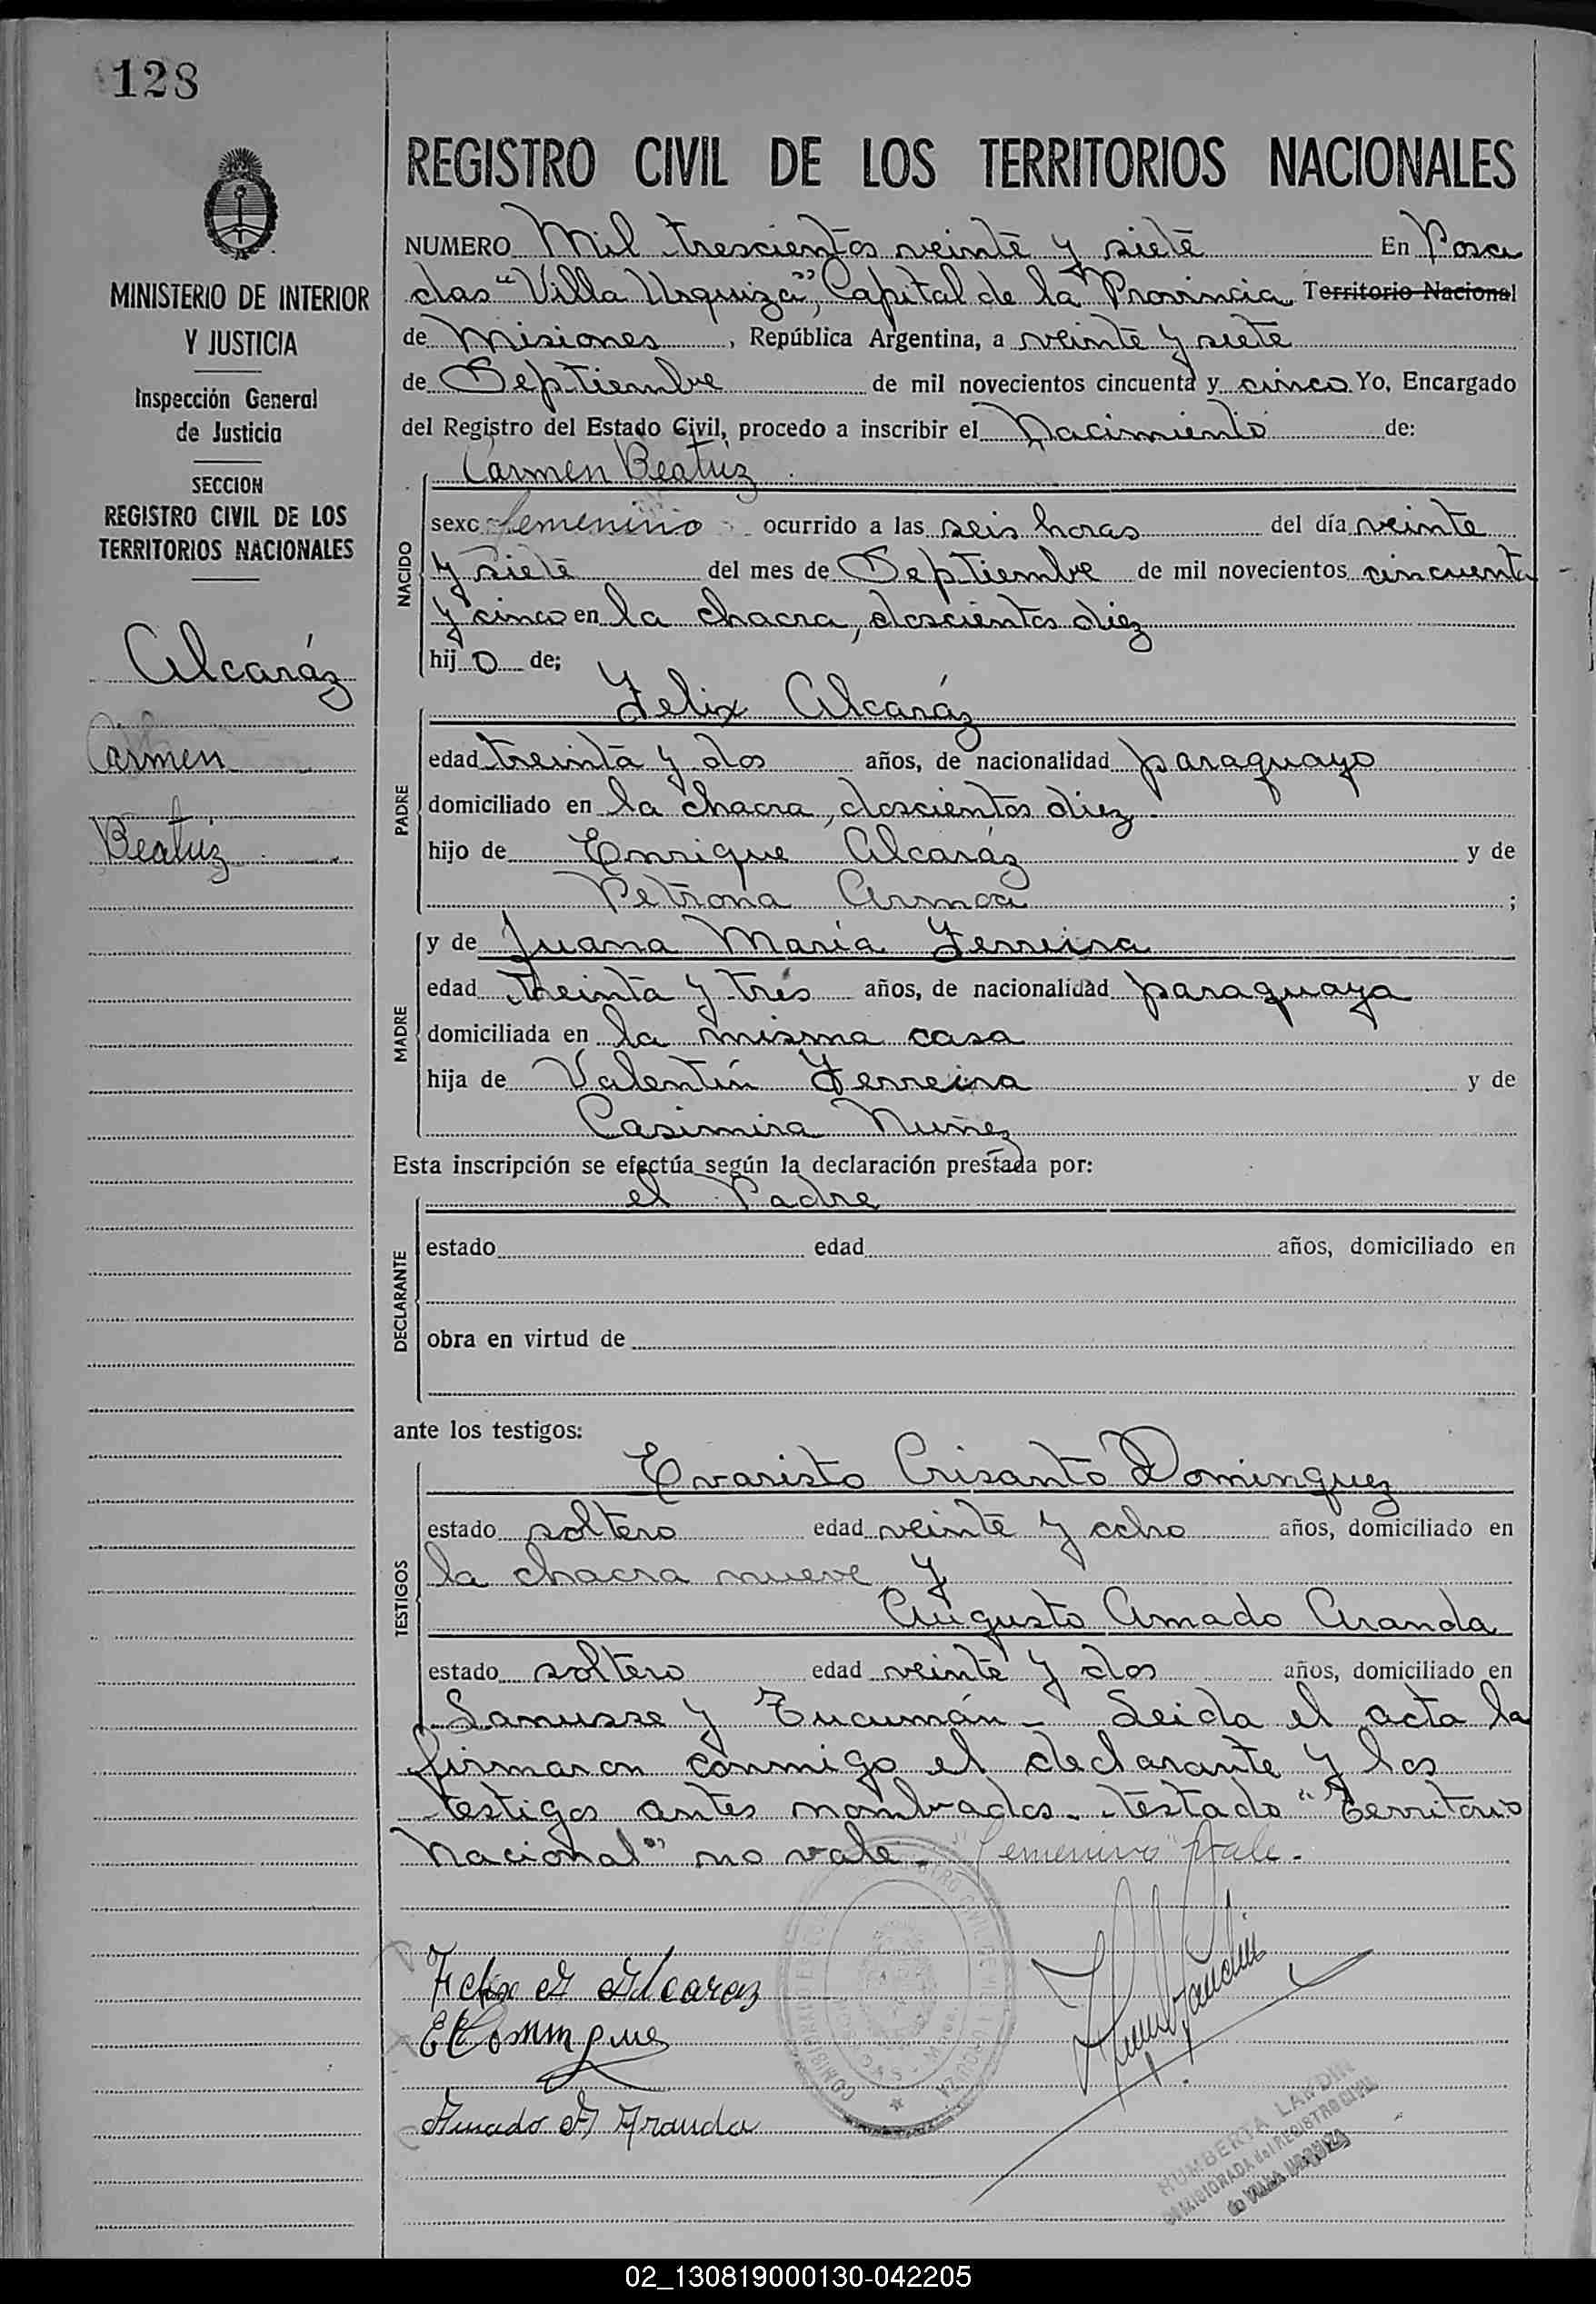 128
MINISTERIO DE INTERIOR
Y JUSTICIA
Inspección General
de Justicia
SECCION
REGISTRO CIVIL DE LOS
TERRITORIOS NACIONALES
Alcaráz
Carmen
Beatriz
REGISTRO CIVIL DE LOS TERRITORIOS NACIONALES
NUMERO Mil trescientos veinte y siete En Posa
das "Villa Urquiza", Capital de la Provincia Territorio Nacional
de Misiones, República Argentina, a veinte y siete
de Septiembre de mil novecientos cincuenta y cinco Yo, Encargado
del Registro del Estado Civil, procedo a inscribir el Nacimiento de:
Carmen Beatriz
NACIDO
sexo femenino ocurrido a las seis horas del día veinte
y siete del mes de Septiembre de mil novecientos cincuenta
y cinco en la chacra, doscientos diez
hijo de;
Felix Alcaráz
PADRE
edad treinta y dos años, de nacionalidad paraguayo
domiciliado en la chacra, doscientos diez
hijo de Enrique Alcaráz y de
Petrona Armoa;
MADRE
y de Juana María Ferreira
edad treinta y tres años, de nacionalidad paraguaya
domiciliada en la misma casa
hija de Valentín Ferreira y de
Casimira Nuñez
Esta inscripción se efectúa según la declaración prestada por:
el Padre
DECLARANTE
estado edad años, domiciliado en
obra en virtud de
ante los testigos:
Evaristo Crisanto Dominguez
TESTIGOS
estado soltero edad veinte y ocho años, domiciliado en
la chacra nueve y
Augusto Amado Aranda
estado soltero edad veinte y dos años, domiciliado en
Lanusse y Tucumán - Leida el acta la
firmaron conmigo el declarante y los
testigos antes nombrados. testado "Territorio
Nacional" no vale. "femenino" vale.
Felix A Alcaraz
E C Domingue
Amado A Aranda
HUMBERTA LANDIN
COMISIONADA del REGISTRO CIVIL
de VILLA URQUIZA
02_130819000130-042205